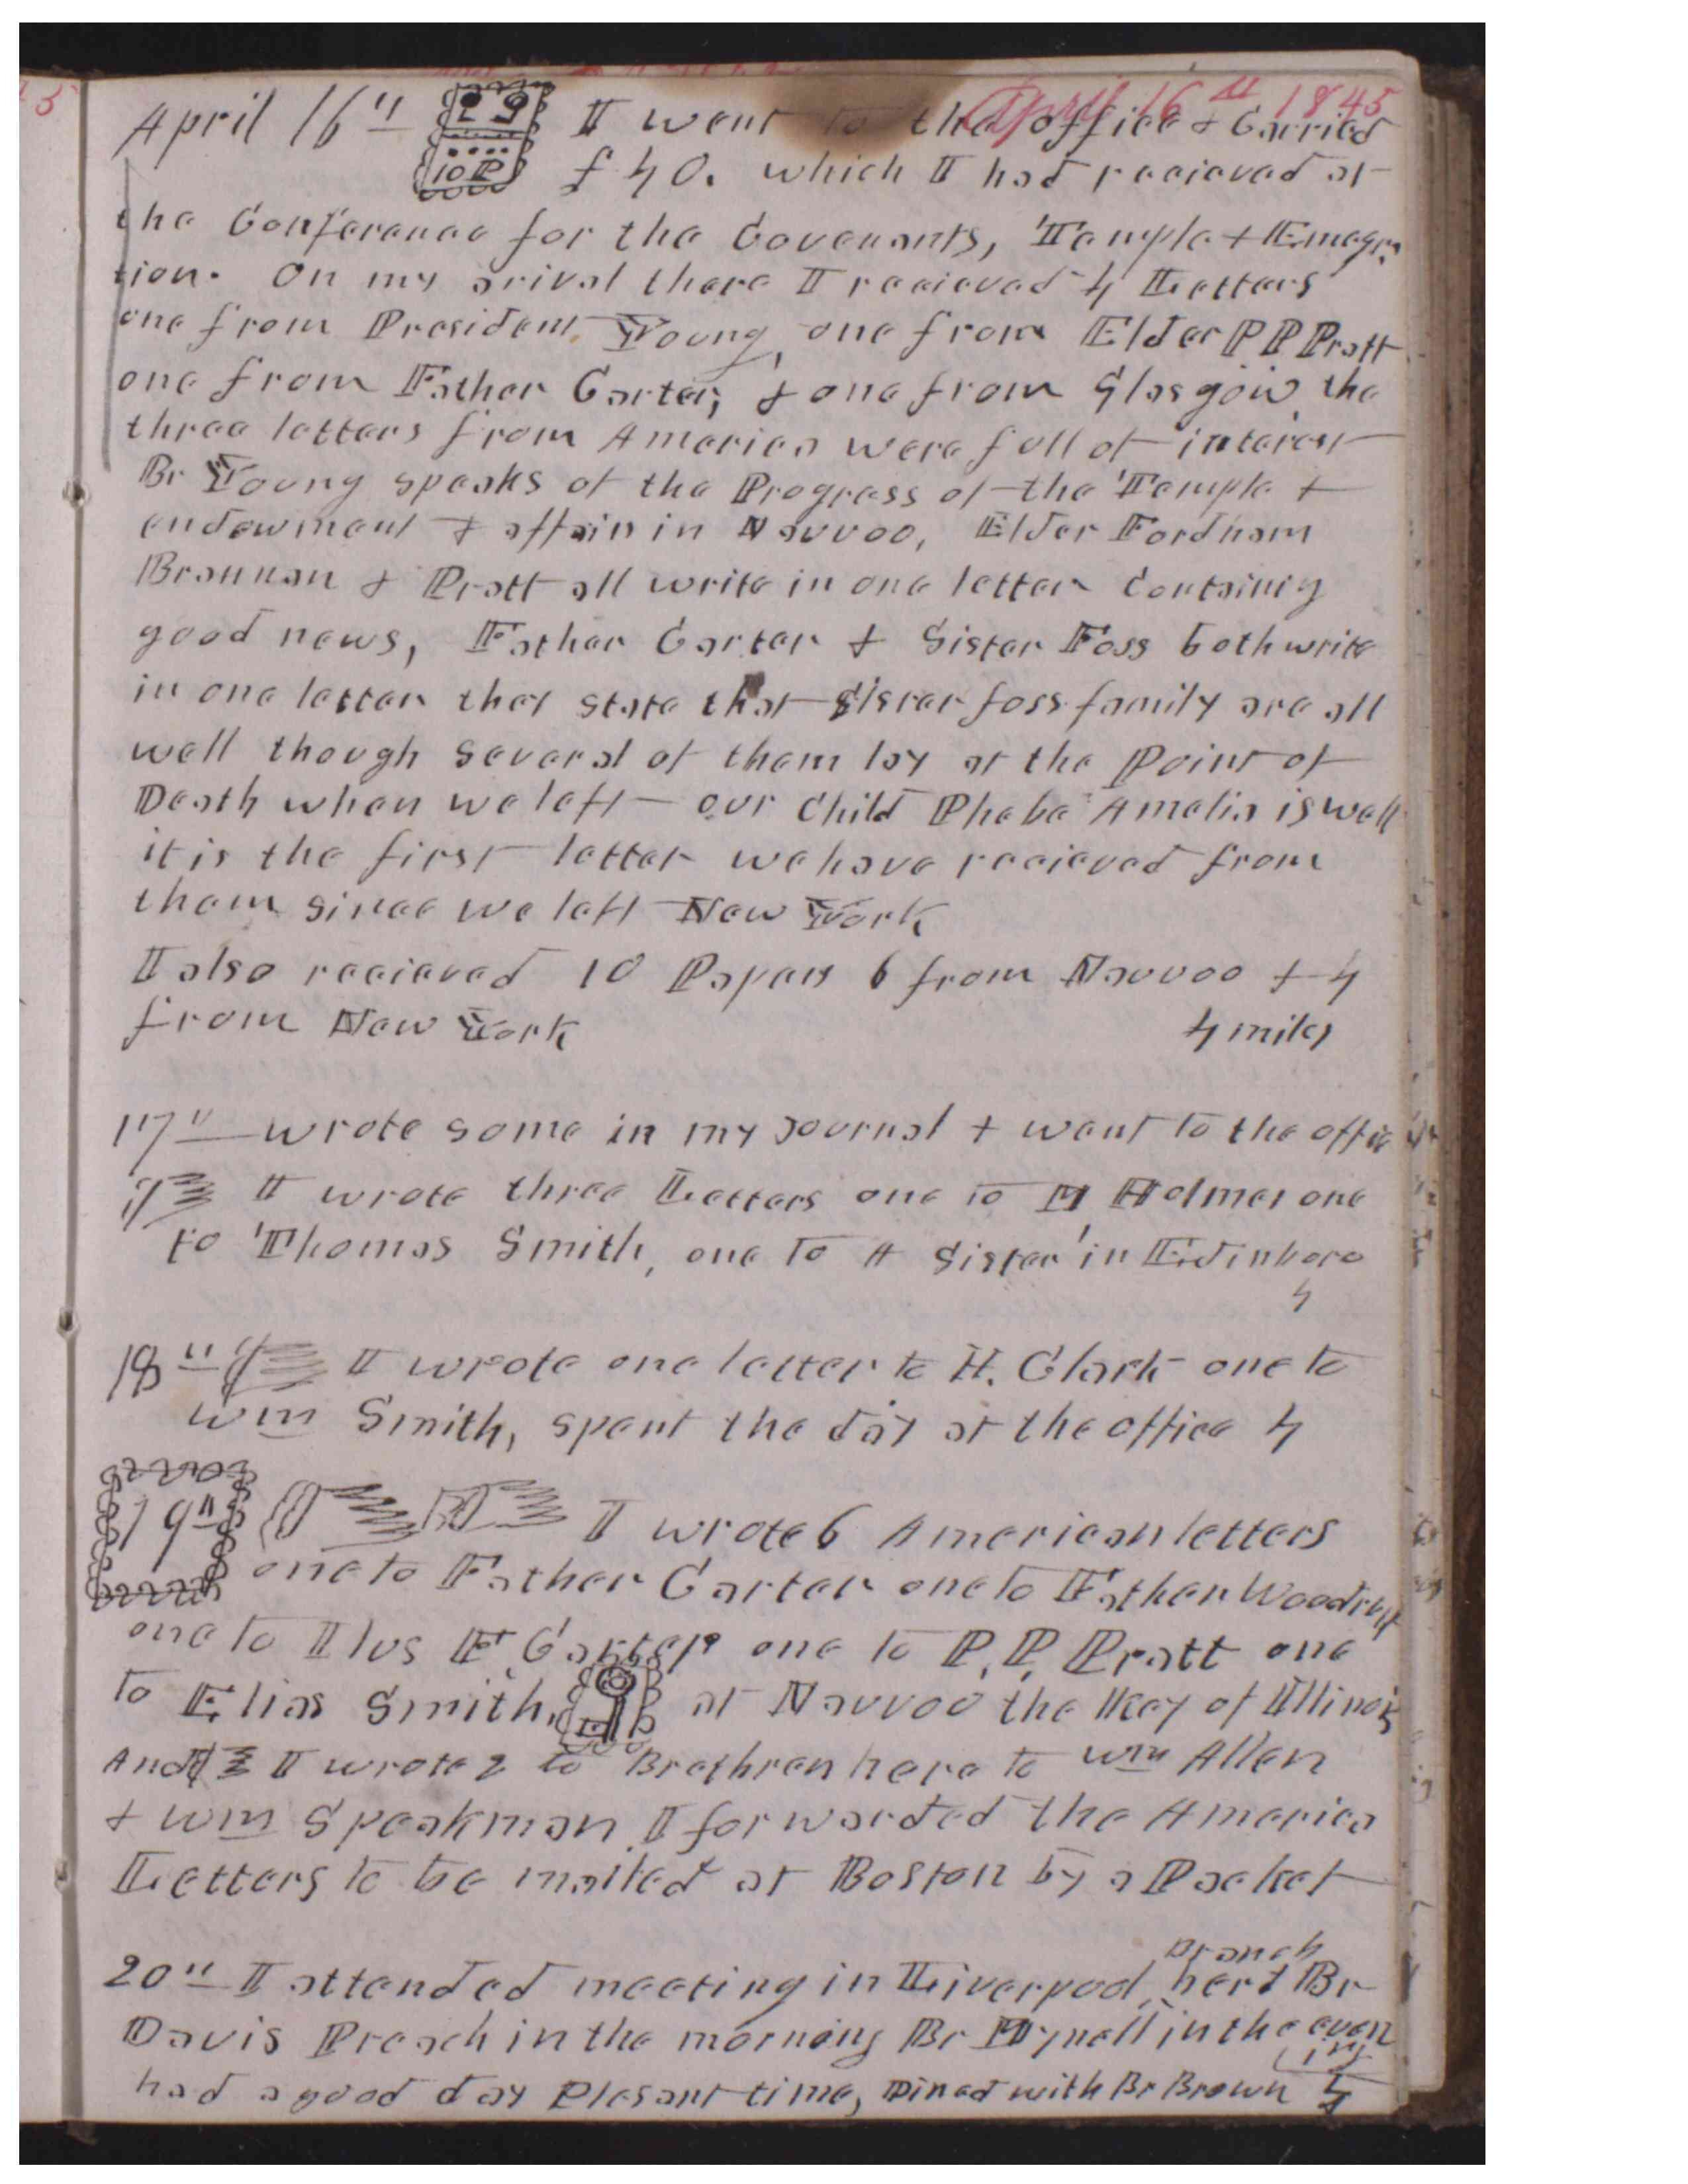 April 16th 1845
April 16th I went to the office & Carried
10 P £40. which I had recieved at
the Conferance for the Covenants, Temple & Emegra
tion. On my arival there I recieved 4 Letters
one from President Young, one from Elder PP Pratt
one from Father Carter, & one from Glasgow, the
three letters from America were full of interest
Br Young speaks of the Progress of the Temple &
endowment & affair in Nauvoo, Elder Fordham
Brannan & Pratt all write in one letter Containig
good news, Father Carter & Sister Foss both write
in one letter they state that Sister foss family are all
well though several of them lay at the Point of
Death when we left our Child Phebe Amelia is well
it is the first letter we have recieved from
them since we left New York
I also recieved 10 Papers 6 from Nauvoo & 4
from New York 4 miles
17th wrote some in my Journal & went to the offic
I wrote three Letters one to M Holmes one
to Thomas Smith, one to A Sister in Edinboro
4
18th I wrote one letter to H. Clark one to
Wm Smith, spent the day at the office 4
19th I wrote 6 American letters
one to Father Carter one to Father Woodruff
one to Ilus F Carter one to P. P. Pratt one
to Elias Smith, at Nauvoo the Key of Illinois
And I wrote 2 to Brethren here to Wm Allen
& Wm Speakman I forwarded the America
Letters to be mailed at Boston by a Packet
branch
20th I attended meeting in Liverpool, herd Br
Davis Preach in the morning Br in the even
ing
had a good day Plesant time, Dined with Br Brown 4